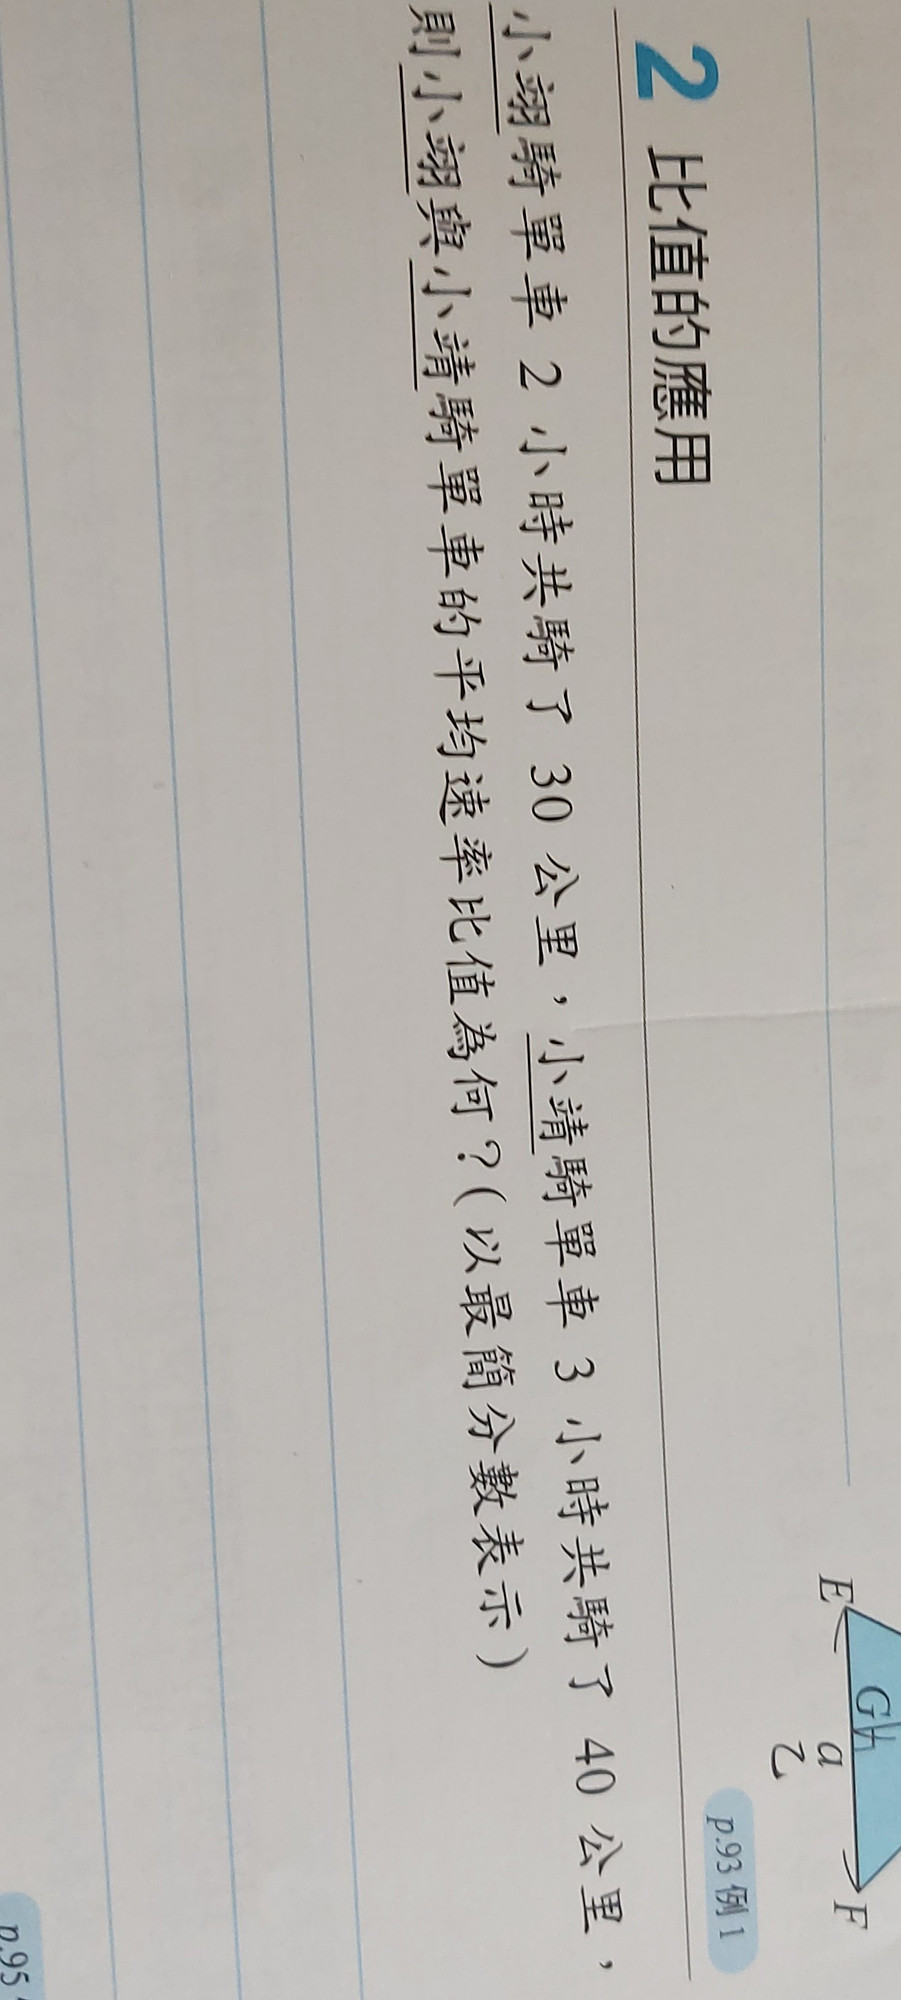 E
G
a
F
乙
2 比值的應用
p.93 例1
小翊騎單車 2 小時共騎了 30 公里，小靖騎單車 3 小時共騎了 40 公里，
則小翊與小靖騎單車的平均速率比值為何？(以最簡分數表示)
p.95